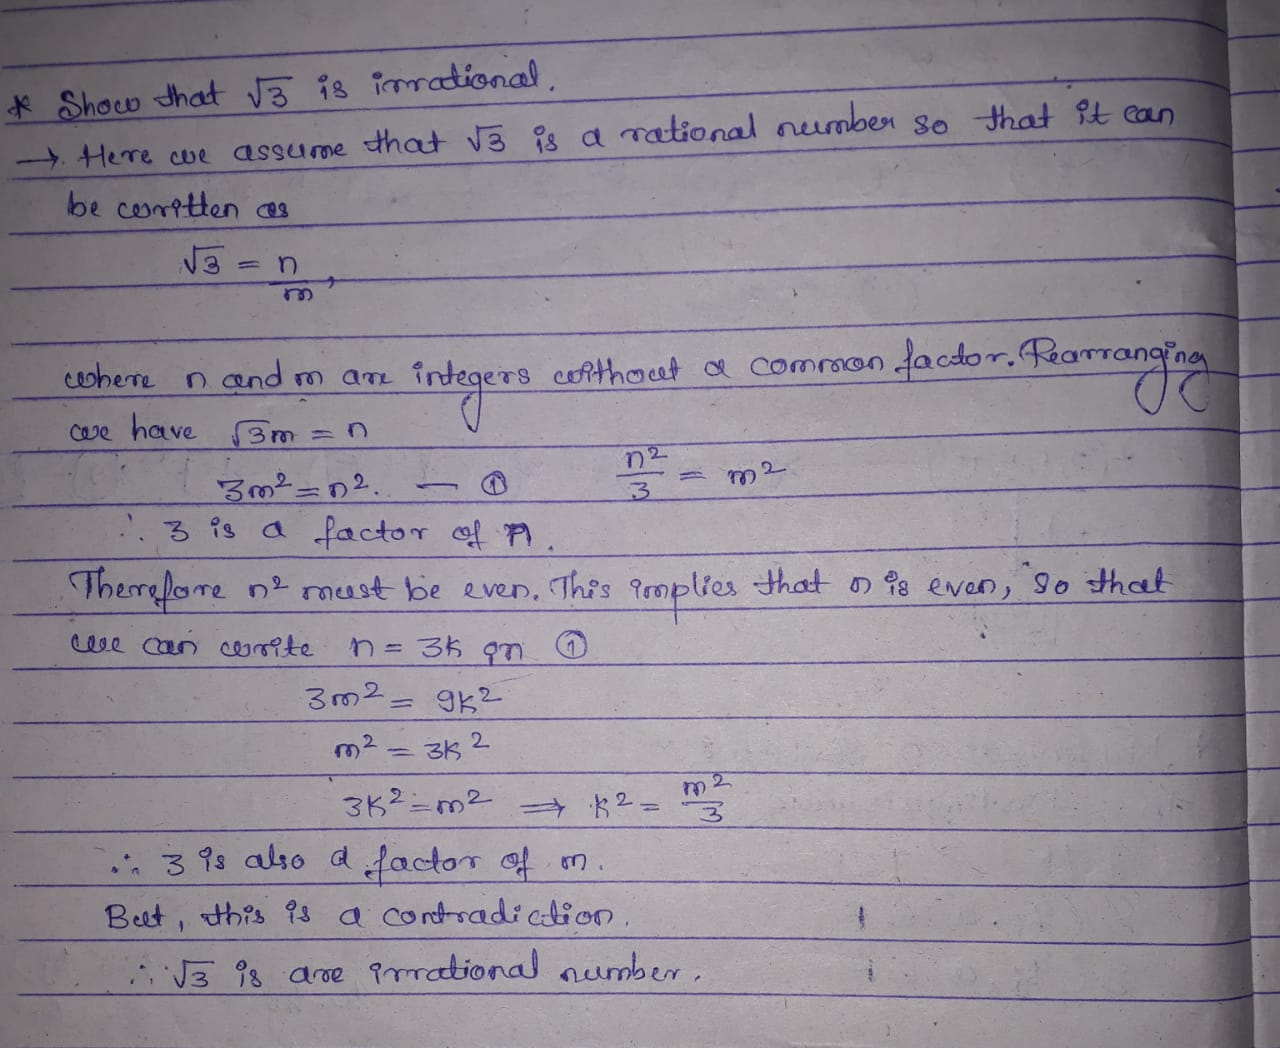 * Show that √3 is irrational.
→ Here we assume that √3 is a rational number so that it can
be written as
√3 = n/m,
where n and m are integers without a common factor. Rearranging
we have √3m = n
3m² = n². — ① n²/3 = m²
∴ 3 is a factor of n.
Therefore n² must be even. This implies that n is even, so that
we can write n = 3k in ①
3m² = 9k²
m² = 3k²
3k² = m² ⇒ k² = m²/3
∴ 3 is also a factor of m.
But, this is a contradiction.
∴ √3 is are irrational number.